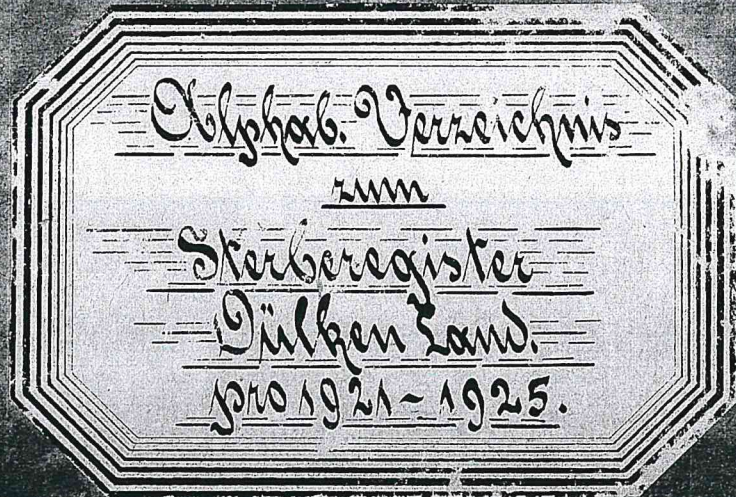 Alphab. Verzeichnis
zum
Sterberegister
Dülken Land.
pro 1921-1925.